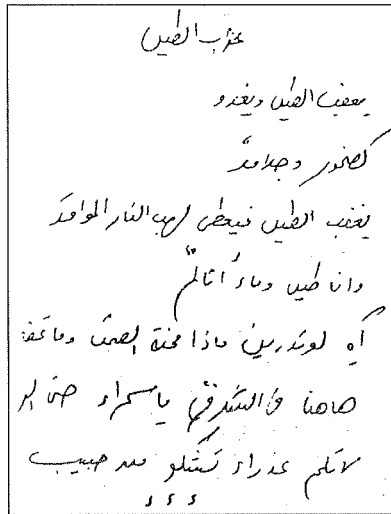 غضب الطين
يغضب الطين ويغدو
كصخور وجلامد
يغضب الطين فيعطى لهب النار المواقد
وانا طين وماء أتألم
آه لو تدرين ماذا محنة الصمت وما
هاهنا في الشرق يا سمراء حتى
لا تكلم عذراء تشكو حبيب